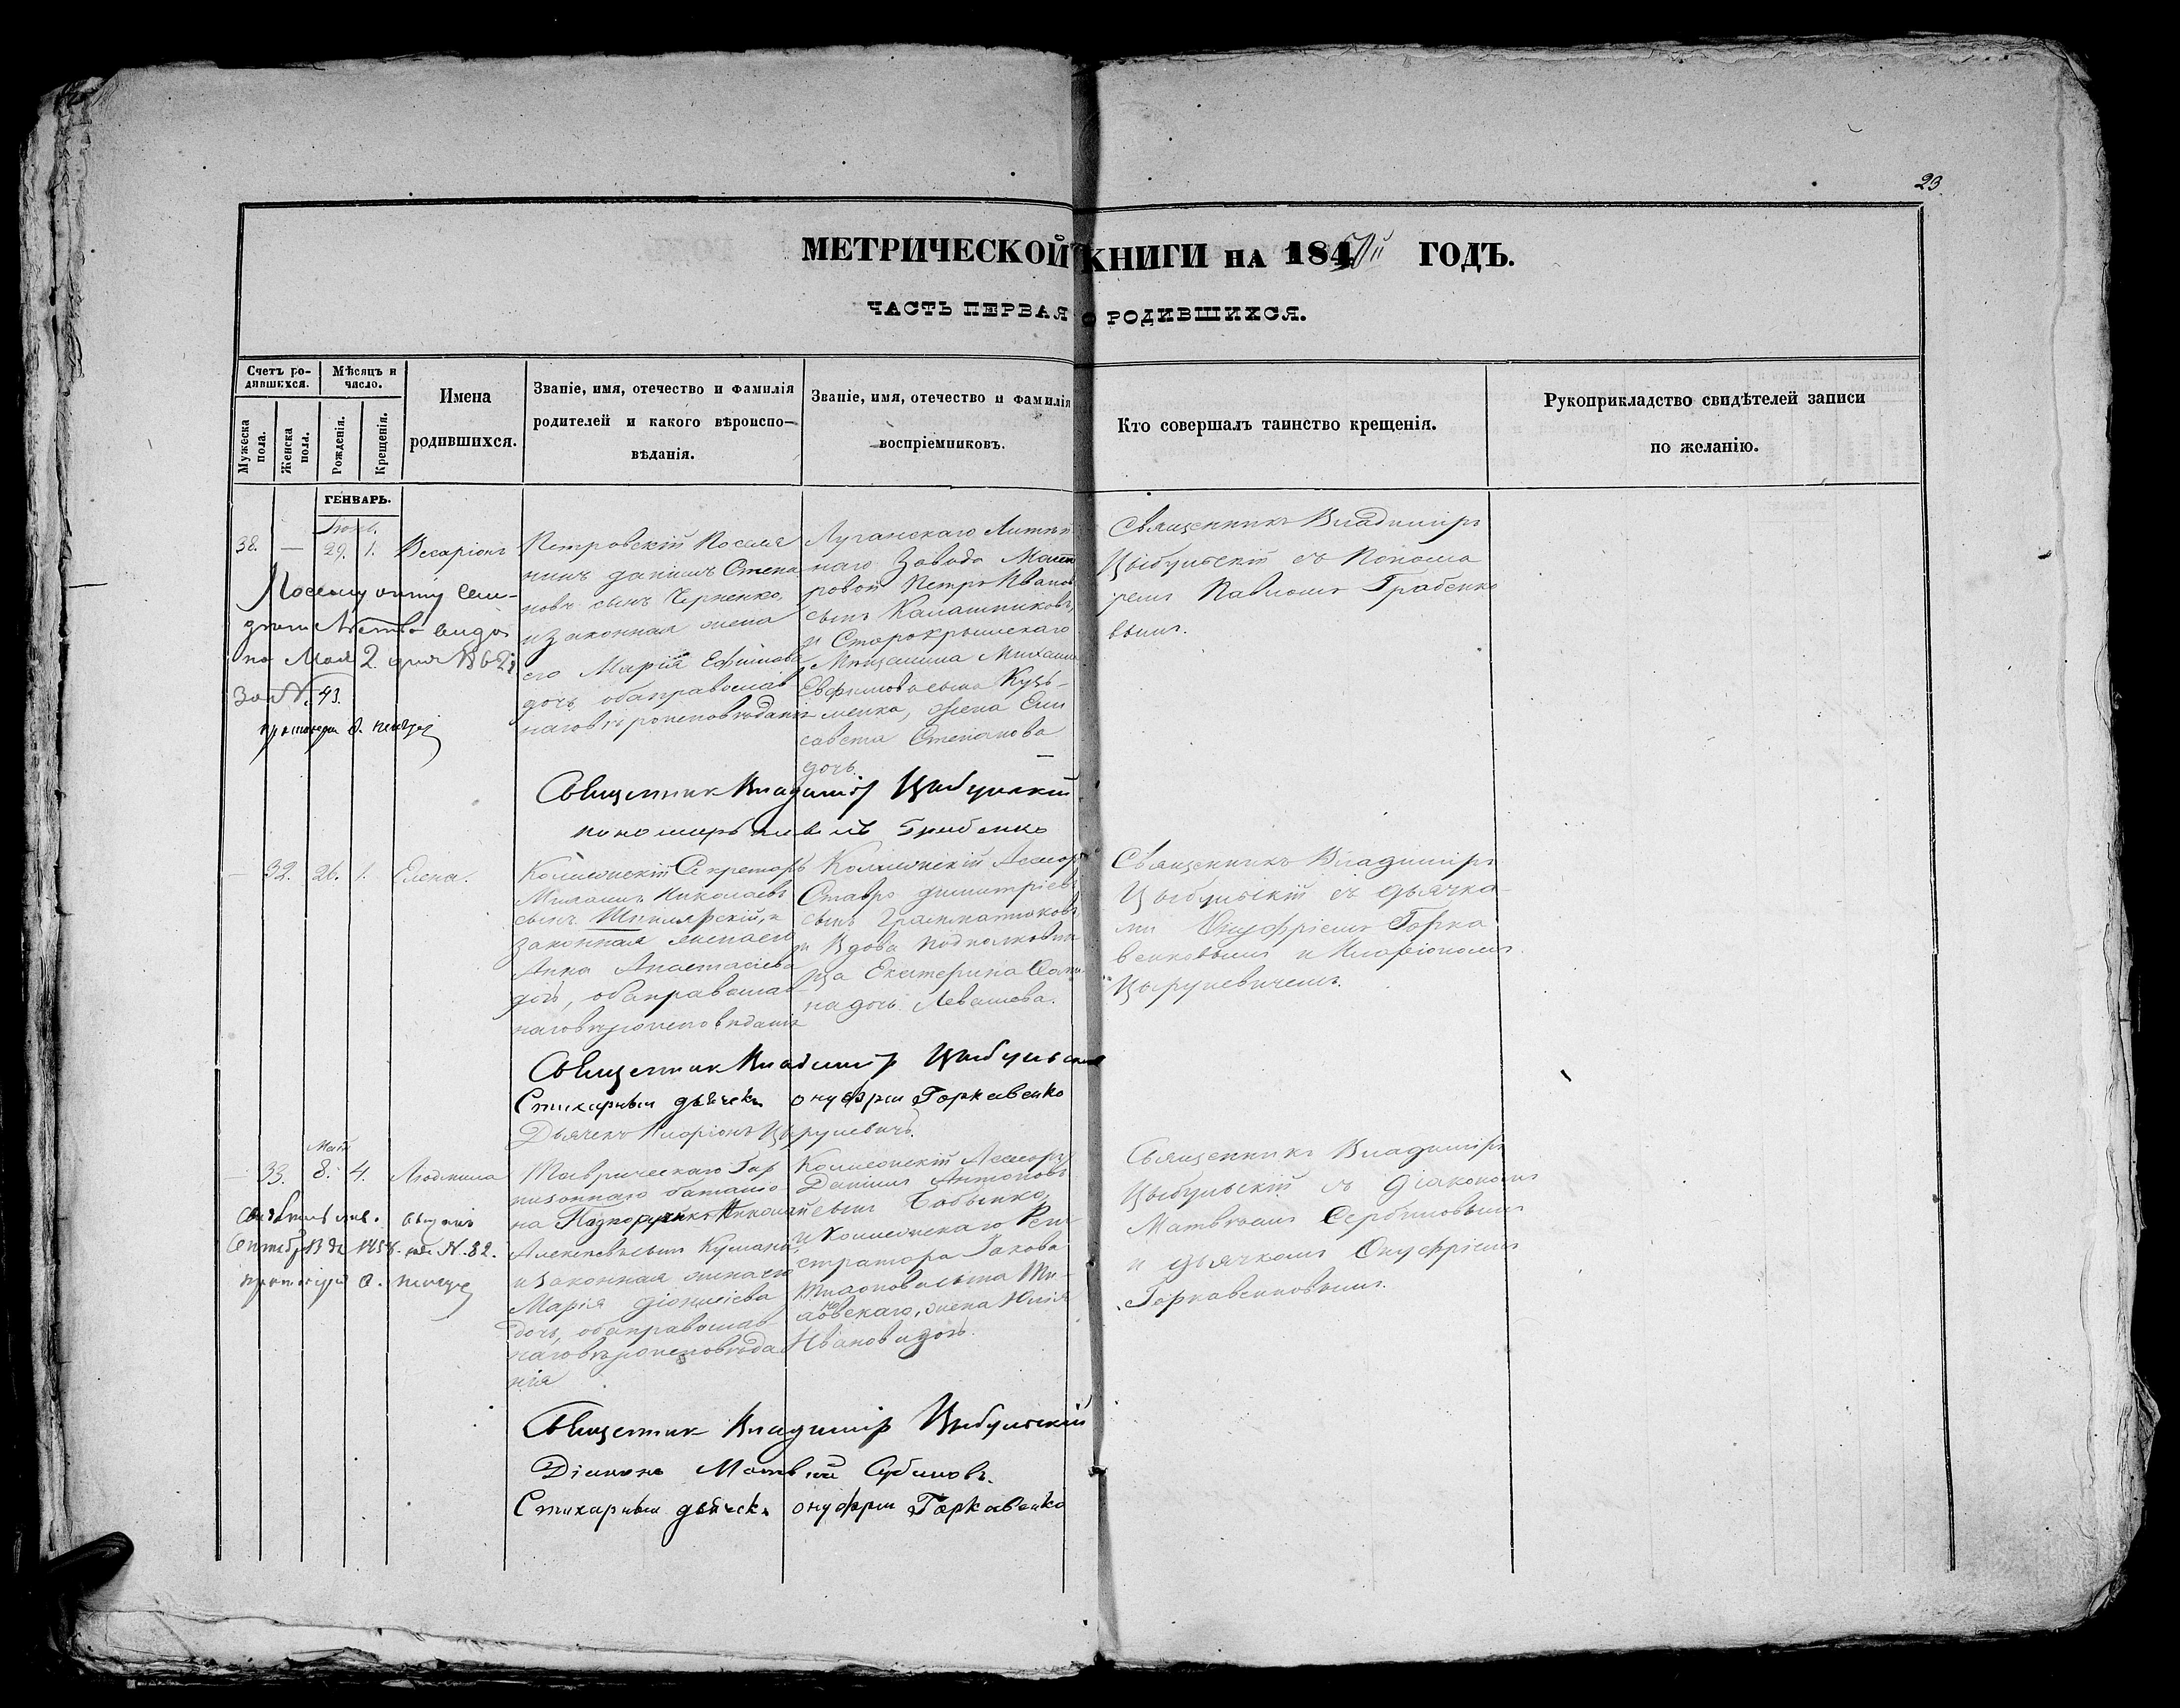 23.
МЕТРИЧЕСКОЙ КНИГИ НА 184 ГОДЪ.
ЧАСТЬ ПЕРВАЯ О РОДИВШИХСЯ.
Счетъ ро-
дившихся.
Мѣсяцъ и
число.
Мужеска
пола.
Женска
пола.
Рожденія.
Крещенія.
Имена
родившихся.
Званіе, имя, отечество и фамилія
родителей и какого вѣроиспо-
вѣданія.
Званіе, имя, отечество и фамилія
воспріемниковъ.
Кто совершалъ таинство крещенія.
Рукоприкладство свидѣтелей записи
по желанію.
ГЕНВАРЬ.
38.
—
29.
1.
Весаріонъ
Петровскій Поселя
нинъ Данилъ Степа
новъ сынъ Черненко,
и законная жена
его Марія Ефимова
дочь обаправослав
наговѣроисповѣданія
Луганскаго Литей
наго Завода Масте
ровой Петръ Иванов
сынъ Калашниковъ,
и Старокрымскаго
Мещанина Михаила
Евфимова сына Кузь-
менка, жена Ели
савета Степанова
дочь.
Священникъ Владиміръ
Цыбульскій съ Понома
ремъ Павломъ Грабенко
вымъ.
По сему акту
2 дня 1862
за №. 43.
Священникъ Владиміръ Цибульскій
пономарь Павелъ Грабенко
—
32.
26.
1.
Елена.
Коллежскій Секретарь
Николаевъ
сынъ и
законная женаего
Анна Анастасіева
дочь, обаправослав
наговѣроисповѣданія
Коллежскій Асесор
Ставро Димитріевъ
сынъ Грамматиковъ
и Вдова Подполковни
ца Екатерина
на дочь Левашева.
Священникъ Владиміръ
Цыбульскій съ дьячка-
ми Онуфріемъ Горка
венковымъ и Иларіономъ
Цыруневичемъ.
Священник Владимір Цибульскій
Стихарный дьячекъ Онуфрій Горкавенко
Дьячекъ Иларіонъ Цыруневичъ.
Май
—
33.
8.
4.
Людмила
Таврическаго Гар
низоннаго баталіо
на Подпоручикъ Николай
Алексѣевъсынъ
и законная женаего
Марія Діонисіева
дочь, обаправослав
наговѣроисповѣда
нія
Коллежскій Асесоръ
Даніилъ Антоновъ
сынъ Бабенко,
и Коллежскаго Реги-
стратора Іакова
жена Юлія
Иванова дочь.
Священникъ Владиміръ
Цыбульскій съ Діакономъ
Матвѣемъ Сербиновымъ
и дьячкомъ Онуфріемъ
Горкавенковымъ.
выдано
Сентября 13 дня 1858 года №. 82.
Священник Владиміръ Цибульскій
Діаконъ Матвѣй Сербиновъ.
Стихарный дьячекъ Онуфрій Горкавенко